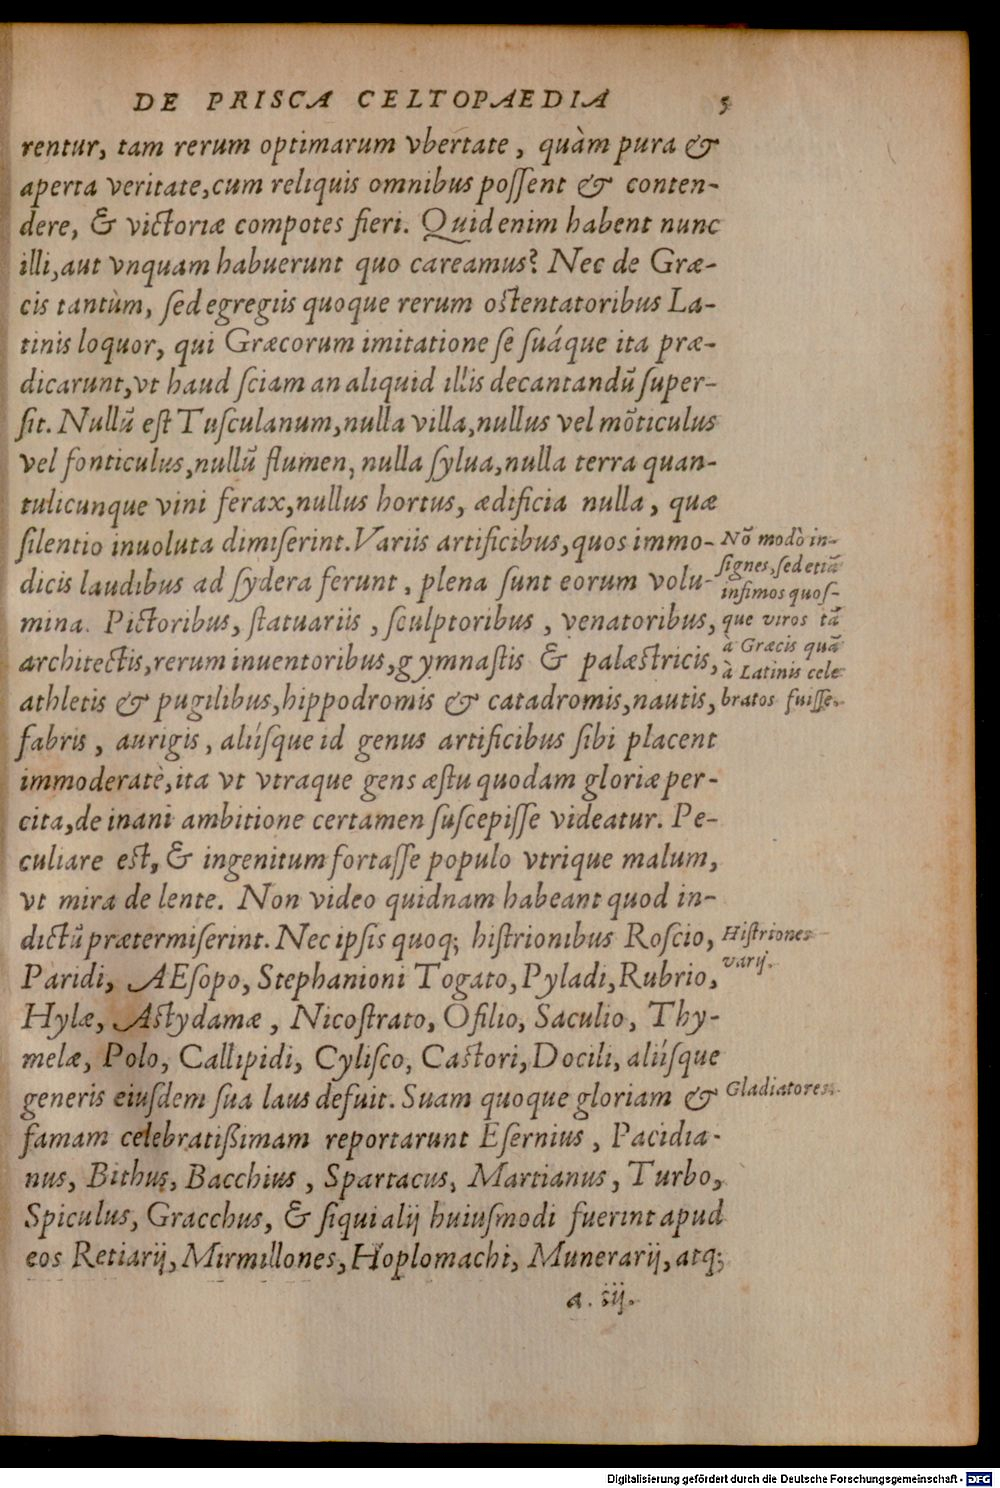 DE PRISCA CELTOPAEDIA 5
rentur, tam rerum optimarum vbertate, quàm pura &
aperta veritate, cum reliquis omnibus poſſent & conten-
dere, & victoriæ compotes fieri. Quid enim habent nunc
illi, aut vnquam habuerunt quo careamus? Nec de Græ-
cis tantùm, ſed egregiis quoque rerum oſtentatoribus La-
tinis loquor, qui Græcorum imitatione ſe ſuáque ita præ-
dicarunt, vt haud ſciam an aliquid illis decantandũ ſuper-
ſit. Nullũ eſt Tuſculanum, nulla villa, nullus vel mõticulus
vel fonticulus, nullũ flumen, nulla ſylua, nulla terra quan-
tulicunque vini ferax, nullus hortus, ædificia nulla, quæ
ſilentio inuoluta dimiſerint. Variis artificibus, quos immo-
dicis laudibus ad ſydera ferunt, plena ſunt eorum volu-
mina. Pictoribus, ſtatuariis, ſculptoribus, venatoribus,
architectis, rerum inuentoribus, gymnaſtis & palæſtricis,
athletis & pugilibus, hippodromis & catadromis, nautis,
fabris, aurigis, aliíſque id genus artificibus ſibi placent
immoderatè, ita vt vtraque gens æſtu quodam gloriæ per-
cita, de inani ambitione certamen ſuſcepiſſe videatur. Pe-
culiare eſt, & ingenitum fortaſſe populo vtrique malum,
vt mira de lente. Non video quidnam habeant quod in-
dictũ prætermiſerint. Nec ipſis quoq; hiſtrionibus Roſcio,
Paridi, AEſopo, Stephanioni Togato, Pyladi, Rubrio,
Hylæ, Aſtydamæ, Nicoſtrato, Ofilio, Saculio, Thy-
melæ, Polo, Callipidi, Cyliſco, Caſtori, Docili, aliíſque
generis eiuſdem ſua laus defuit. Suam quoque gloriam &
famam celebratiſſimam reportarunt Eſernius, Pacidia-
nus, Bithus, Bacchius, Spartacus, Martianus, Turbo,
Spiculus, Gracchus, & ſiqui alij huiuſmodi fuerint apud
eos Retiarij, Mirmillones, Hoplomachi, Munerarij, atq;
a. iij.
Nõ modò in-
ſignes, ſed etiã
infimos quoſ-
que viros tã
à Græcis quã
à Latinis cele
bratos fuiſſe.
Hiſtriones
varij.
Gladiatores.
Digitalisierung gefördert durch die Deutsche Forschungsgemeinschaft - DFG